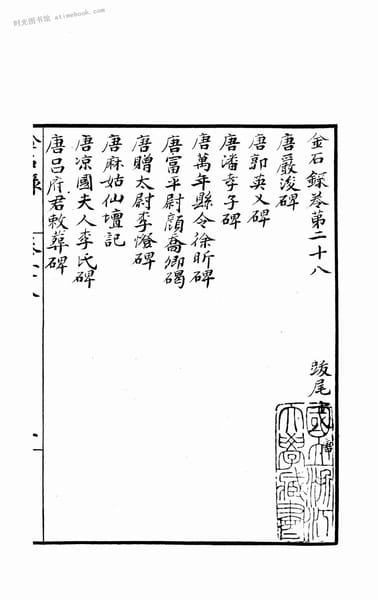 时光图书馆 atimebook.com
金石錄卷第二十八
跋尾
唐嚴浚碑
唐郭英乂碑
唐潘孝子碑
唐萬年縣令徐昕碑
唐富平尉顔喬卿碣
唐贈太尉李憕碑
唐麻姑仙壇記
唐凉國夫人李氏碑
唐呂府君敕葬碑